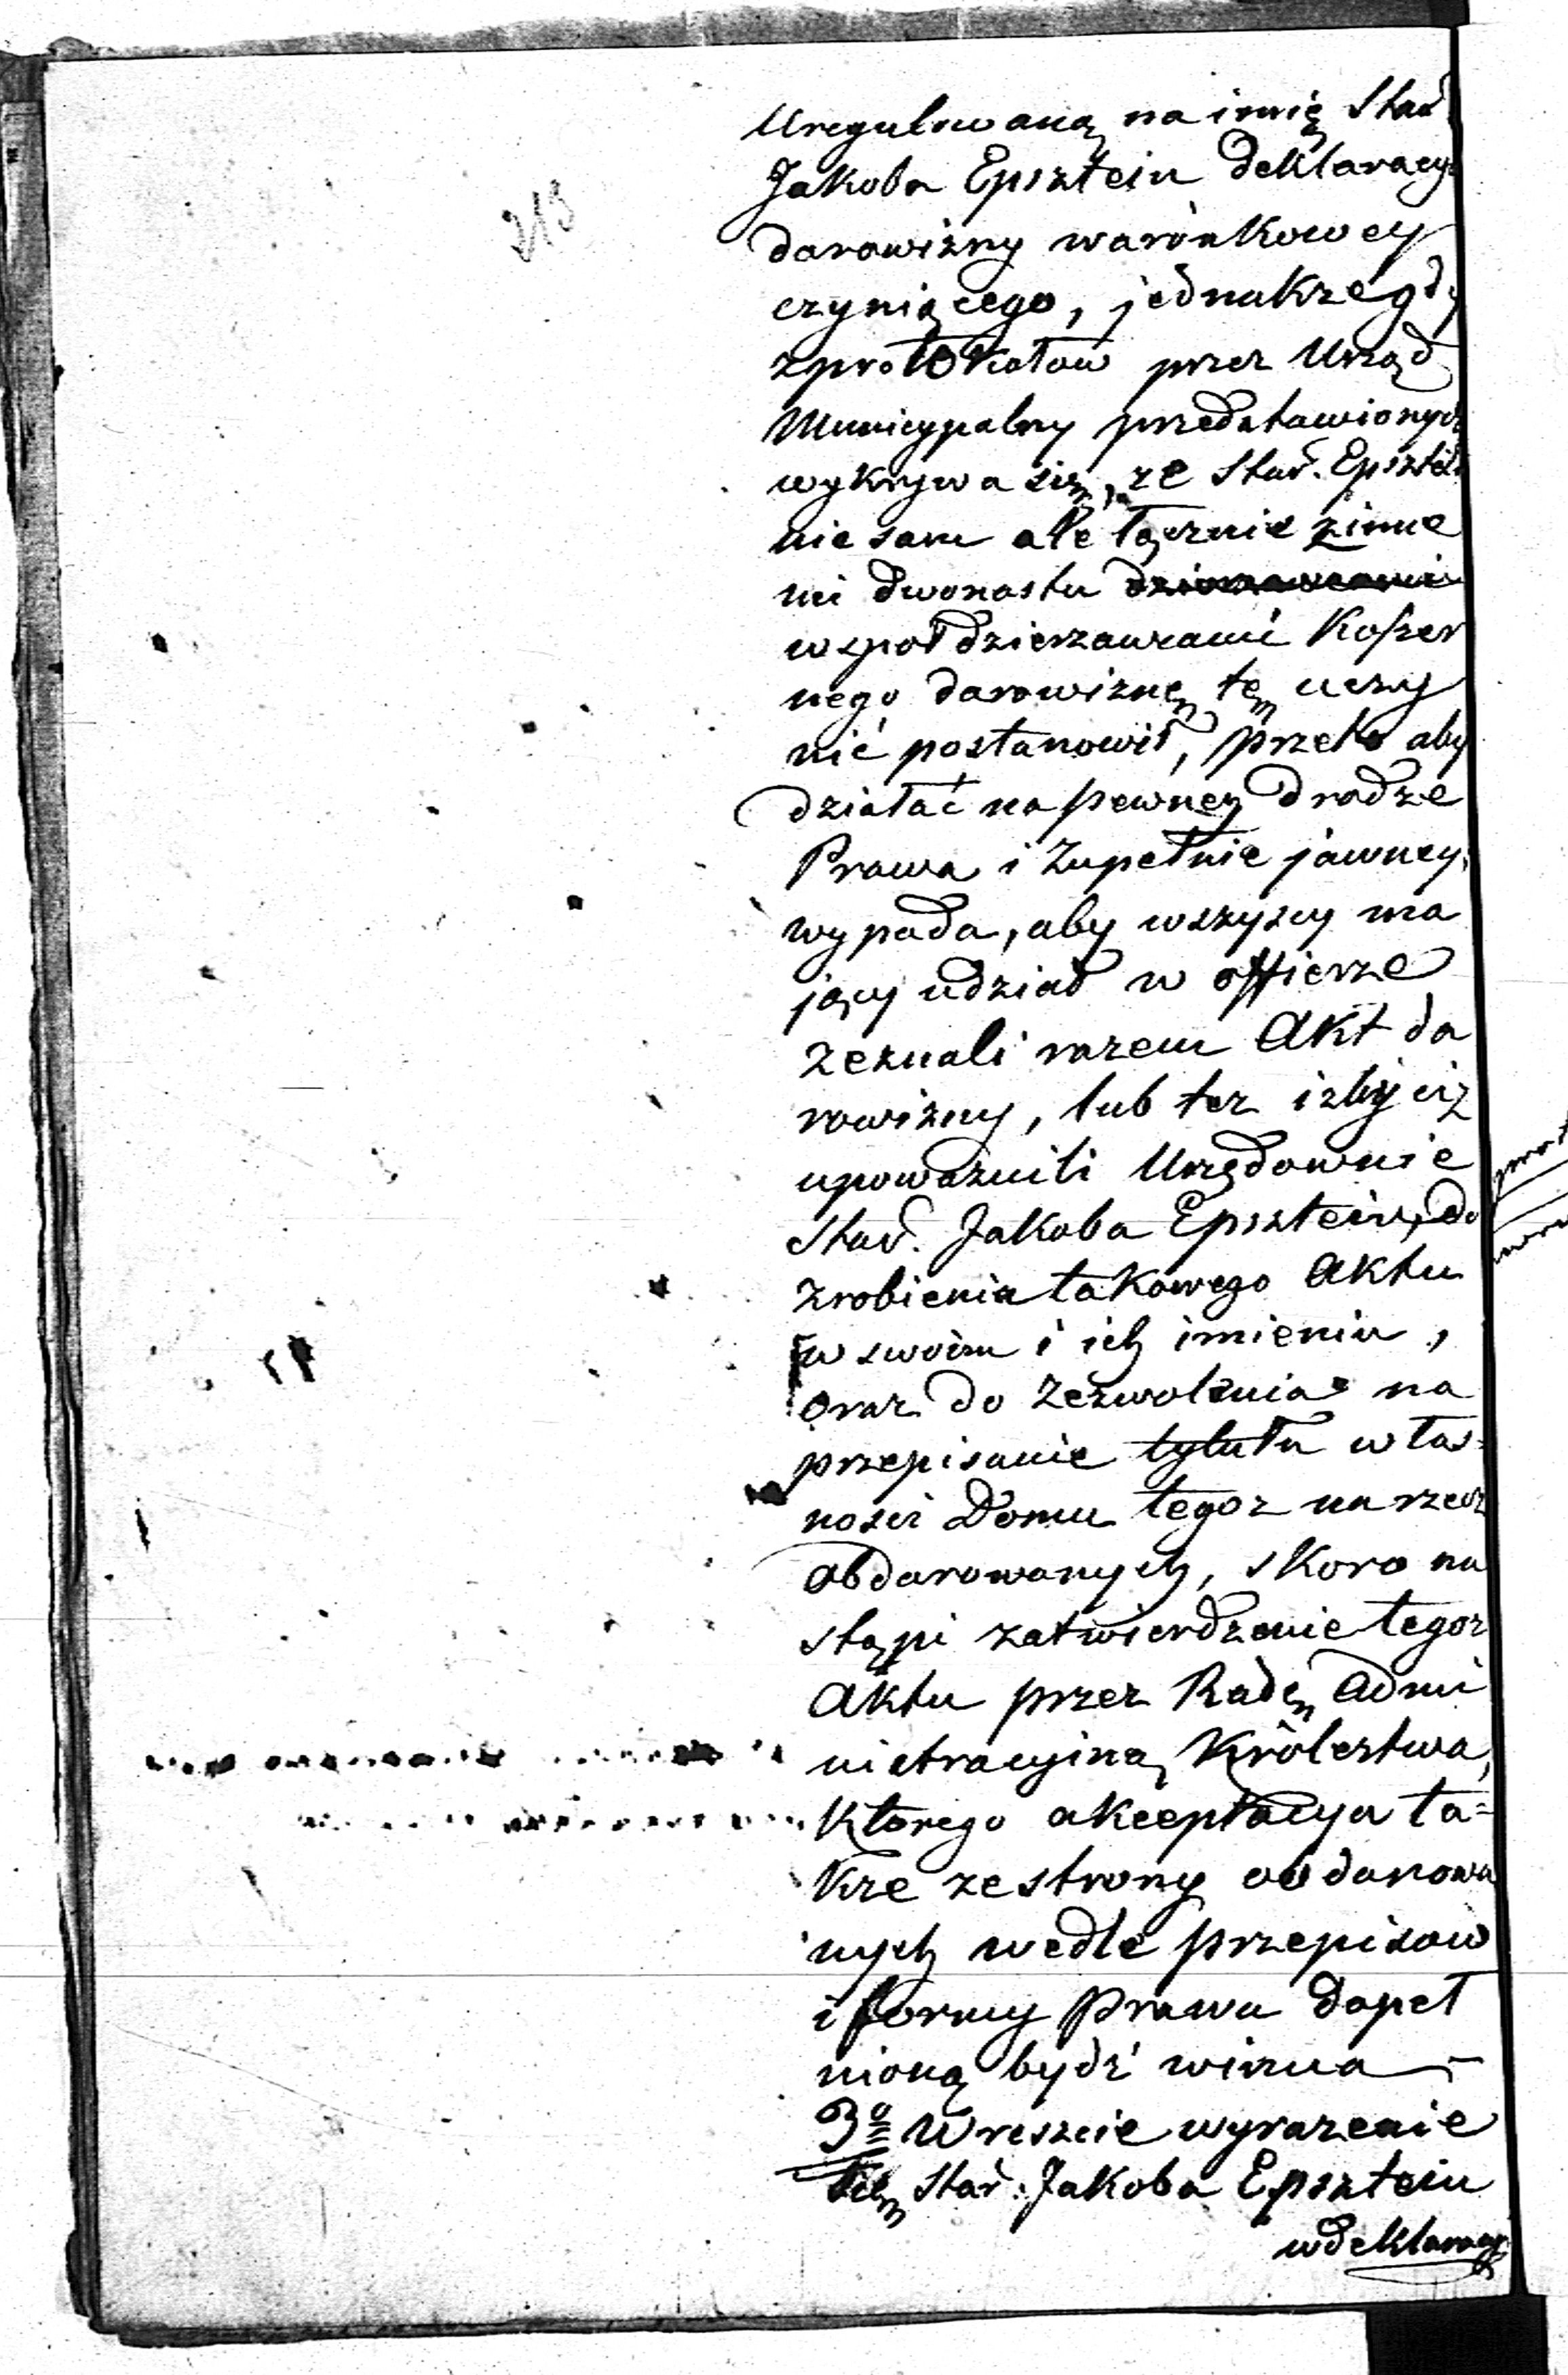 213
Uregulowaną na imię Star.
Jakoba Epsztein deklaracyą
darowizny warónkowey
czyniącego, jednakże gdy
z protokołów przez Urząd
Municypalny przedstawionych
wykrywa się, że Star. Epsztein
nie sam ale łącznie z inne
mi dwonastu dzierzawcami
wspołdzierzawcami Koszer
nego darowiznę tę uczy
nić postanowił, przeto aby
działać na pewney drodze
Prawa i Zupełnie jawney,
wypada, aby wszyscy ma
jący udział w offierze
zeznali razem Akt da
rowizny, lub tez izby ciż
upoważnili Urzędownie
Star. Jakoba Epsztein, do
zrobienia takowego Aktu
w swoim i ich imieniu,
oraz do zezwolenia na
przepisanie tytułu włas-
nosci Domu tegoz na rzecz
obdarowanych, skoro na
stąpi zatwierdzenie tegoz
Aktu przez Radę Admi
nistracyiną Królestwa,
Ktorego akceptacya ta=
kze ze strony obdarowa
nych wedle przepisow
i formy prawa dopeł
nioną bydź winna —
3º Wreszcie wyrazenie
się Star. Jakoba Epsztein
w deklaracyi